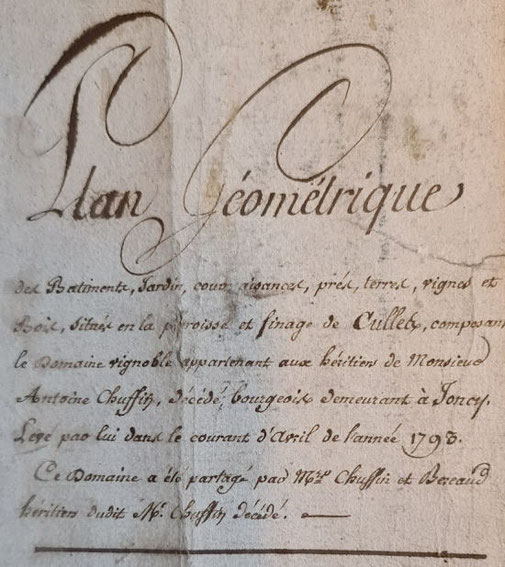 Plan Géomëtrique
des Batiments, Jardin, cour, aisances, prés, terres, vignes et
Bois, situés en la paroisse et finage de Culles, composant
le Domaine vignoble appartenant aux héritiers de Monsieur
Antoine Chuffin, décédé, bourgeois demeurant à Joncy.
Levé par lui dans le courant d'Avril de l'année 1793.
Ce Domaine a été partagé par Mrs Chuffin et
héritiers dudit Mr. Chuffin décédé.